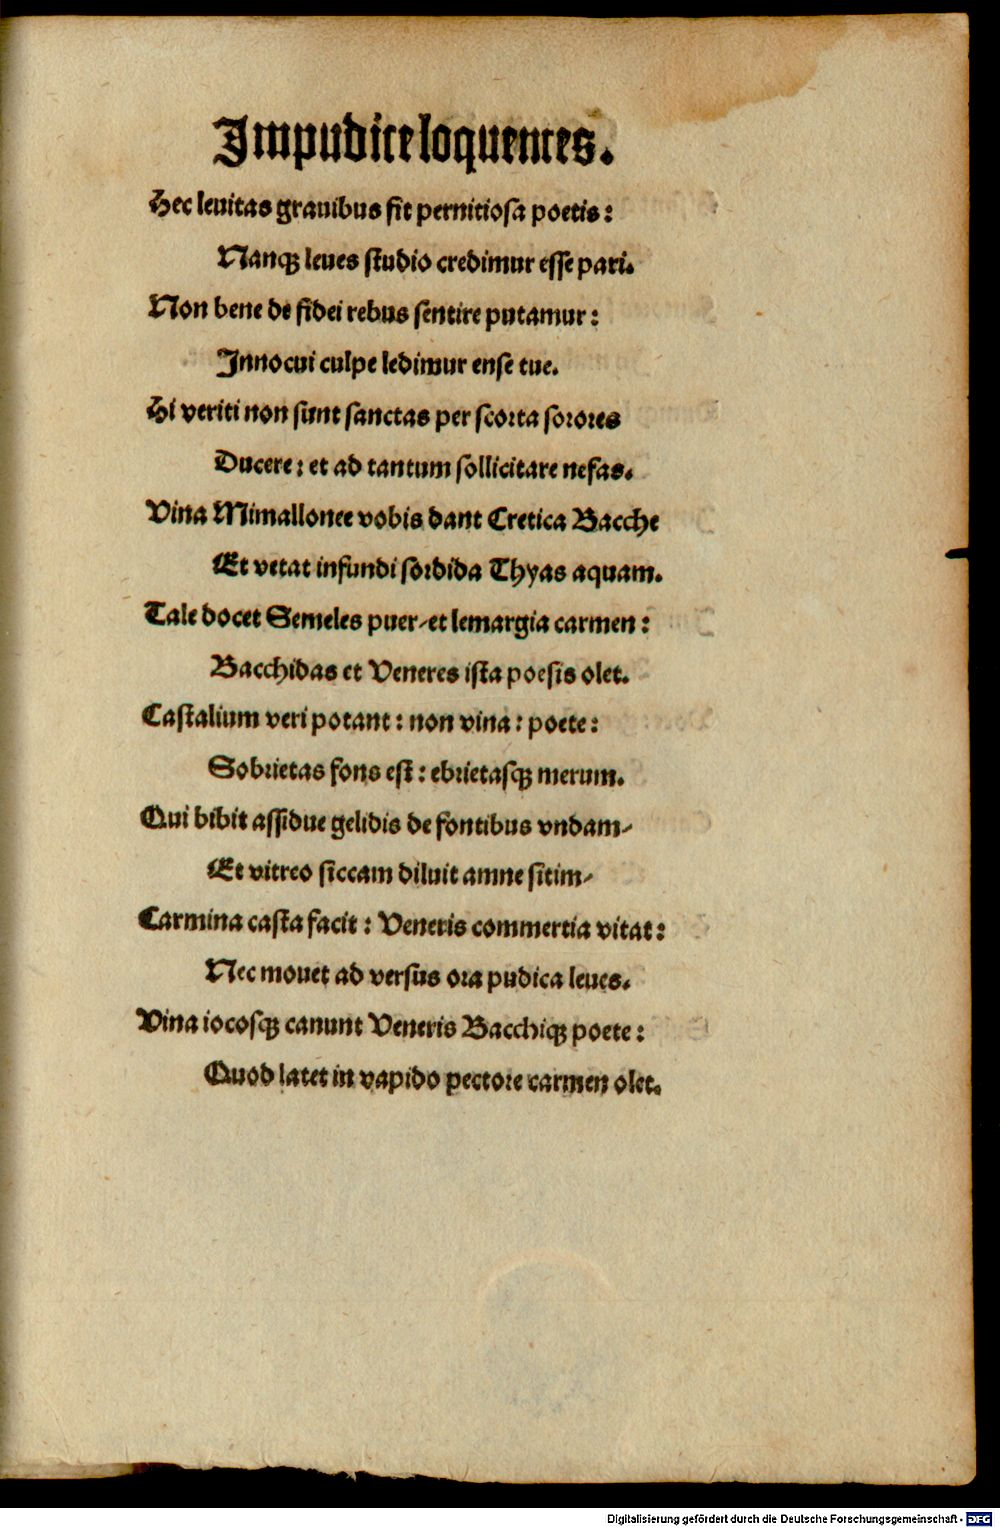 Impudice loquentes.
Hec leuitas grauibus fit pernitiosa poetis:
Nanqꝫ leues studio credimur esse pari.
Non bene de fidei rebus sentire putamur:
Innocui culpe ledimur ense tue.
Hi veriti non sunt sanctas per scorta sorores
Ducere: et ad tantum sollicitare nefas.
Vina Mimallonee vobis dant Cretica Bacche
Et vetat infundi sordida Thyas aquam.
Tale docet Semeles puer/et lemargia carmen:
Bacchidas et Veneres ista poesis olet.
Castalium veri potant: non vina: poete:
Sobrietas fons est: ebrietasqꝫ merum.
Qui bibit assidue gelidis de fontibus vndam/
Et vitreo siccam diluit amne sitim/
Carmina casta facit: Veneris commertia vitat:
Nec mouet ad versus ora pudica leues.
Vina iocosqꝫ canunt Veneris Bacchiqꝫ poete:
Quod latet in vapido pectore carmen olet.
Digitalisierung gefördert durch die Deutsche Forschungsgemeinschaft - DFG